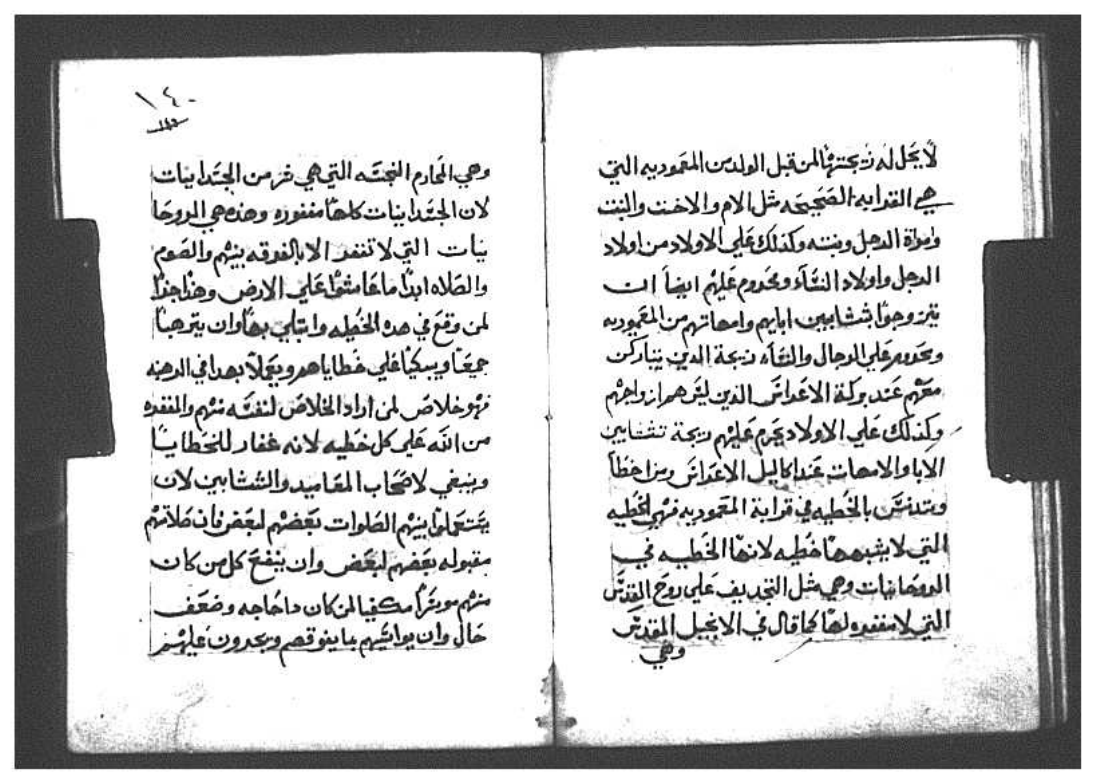 لا يحل له زيجتها لمن قبل الولدين المعموديه التي
هي القرابه الصحيحه مثل الام والاخت والبنت
وامراة الرجل وبنته وكذلك علي الاولاد من اولاد
الرجل واولاد النسآء ومحروم عليهم ايضاً ان
يتزوجوا شبابين ابايهم وامهاتهم من المعموديه
ومحروم علي الرجال والنسآء زيجة الدين يتباركن
معهم عند بركة الاعراس الدين ليس هم ازواجهم
وكذلك علي الاولاد يحرم عليهم زيجة شبابين
الابا والامهات عند اكاليل الاعراس ومن اخطا
وتدنس بالخطيه في قرابة المعموديه فهي الخطيه
التي لا يشبهها خطيه لانها الخطيه في
الروحانيات وهي مثل التجديف علي روح القدس
التي لا مغفره لها كما قال في الانجيل المقدس
وهي
١٤٠
وهي المحارم النجسه التي هي شر من الجسدانيات
لان الجسدانيات كلها مغفوره وهذه هي الروحا
نيات التي لا تغفر الا بالفرقه بينهم والصوم
والصلاه ابداً ما عاشوا علي الارض وهذا جذا
لمن وقع في هده الخطيه وابتلي بها وان يترهبا
جميعاً ويبكيا علي خطاياهم ويعملا بهدا في الرهبنه
فهو خلاص لمن اراد الخلاص لنفسه منهم والمغفره
من الله علي كل خطيه لانه غفار للخطايا
وينبغي لاصحاب المعاميد والشبابين لان
يستعملوا بينهم الصلوات بعضهم لبعض فان صلاتهم
مقبوله بعضهم لبعض وان ينفع كل من كان
منهم موسراً مكفيا لمن كان دا حاجه وضعف
حال وان يواسيهم بما ينوقهم ويجدون عليهم